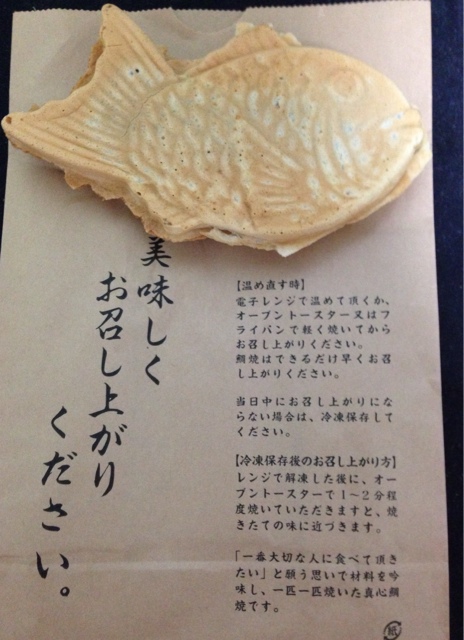 美味しく
お召し上がり
ください。
【温め直す時】
電子レンジで温めて頂くか、
オーブントースター又はフ
ライパンで軽く焼いてから
お召し上がりください。
鯛焼はできるだけ早くお召
し上がりください。
当日中にお召し上がりにな
らない場合は、冷凍保存して
ください。
【冷凍保存後のお召し上がり方】
レンジで解凍した後に、オー
ブントースターで1〜2分程
度焼いていただきますと、焼
きたての味に近づきます。
「一番大切な人に食べて頂き
たい」と願う思いで材料を吟
味し、一匹一匹焼いた真心鯛
焼です。
紙